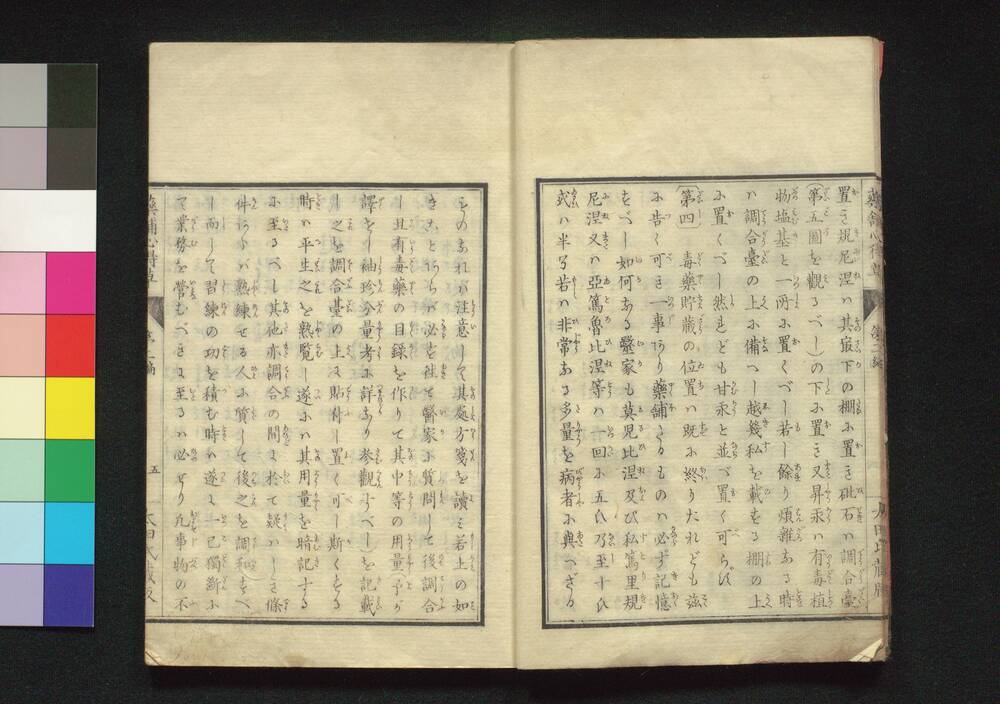 置き規尼涅ハ其最下の棚に置き砒石ハ調合臺
(第五圖を觀るべし)の下に置き又昇汞ハ有毒植
物塩基と一所に置くべし若し餘り煩雜なる時
ハ調合臺の上に備へ越幾私を載する棚の上
に置くべし然れども甘汞と並べ置く可らず
第四 毒藥貯藏の位置ハ既に終りたれども茲
に告く可き一事あり藥舗たるものハ必ず記憶
すべし如何なる醫家も莫児比涅及び私篤里規
尼涅又ハ亞篤魯比涅等ハ一回に五氏乃至十氏
式ハ半り若ハ非常なる多量を病者に與へざる
ものなれバ注意して其處方箋を讀ミ若上の如
きことあらバ必を往て醫家に質問して後調合
し且有毒藥の目録を作りて其中等の用量予が
譯をし袖珍分量考に詳なり參觀すべし)を記載
し之を調合臺の上に貼付し置く可し斯くする
時ハ平生之を熟覧し遂にハ其用量を暗記する
に至るべし其他亦調合の間に於て疑ハしき條
件あらバ熟練せる人に質して後之を調和すべ
し而して習練の功を積む時ハ遂に一己獨斷に
て業務を營むべきに至るハ必せり凡事物の不
藥舗心得草
五
太田氏藏版